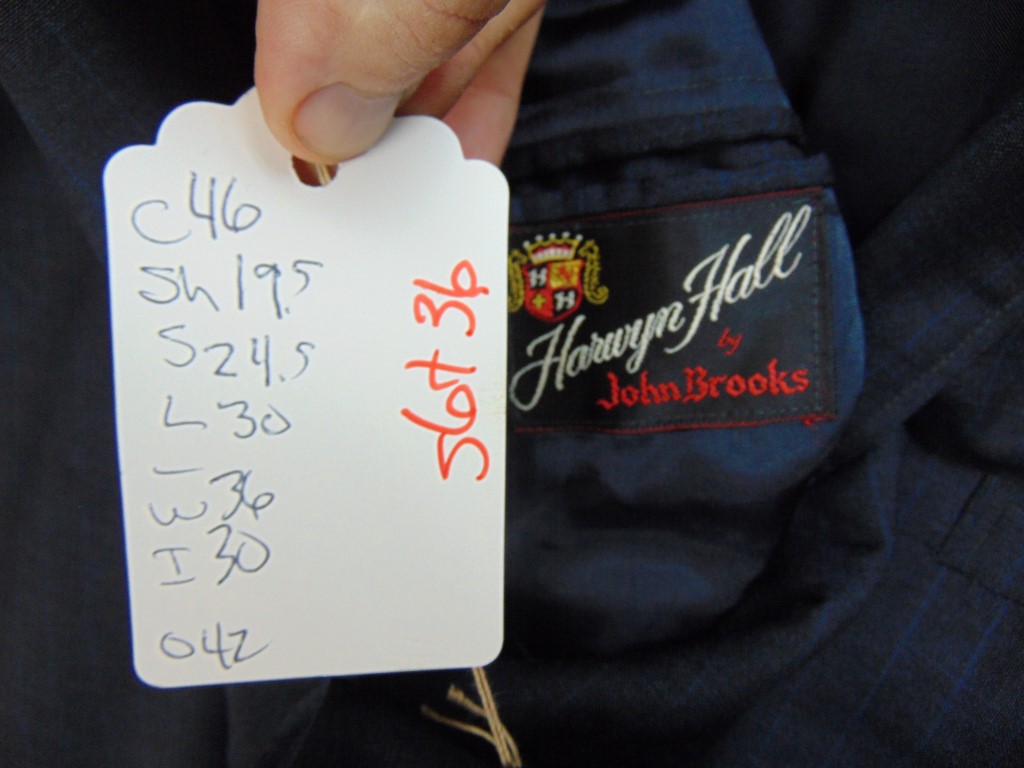 C 46
Sh 19.5
S 24.5
L 30
W 36
I 30
O 42
Harwyn Hall
by
John Brooks